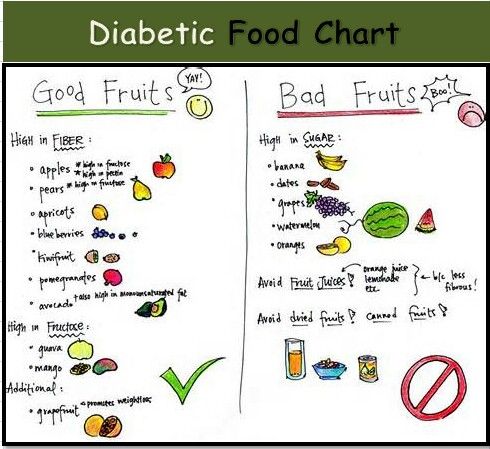 Diabetic Food Chart
Good Fruits
YAY!
HIGH in FIBER:
• apples * high in fructose
* high in pectin
• pears * high in fructose
• apricots
• blueberries
• kiwifruit
• pomegranates
• avocado * also high in monounsaturated fat
High in Fructose:
• guava
• mango
Additional:
• grapefruit promotes weightloss
Bad Fruits
Boo!
High in SUGAR:
• banana
• dates
• grapes
• watermelon
• oranges
Avoid Fruit Juices!
orange juice
lemonade
etc.
b/c less
fibrous!
Avoid dried fruits! canned fruits!